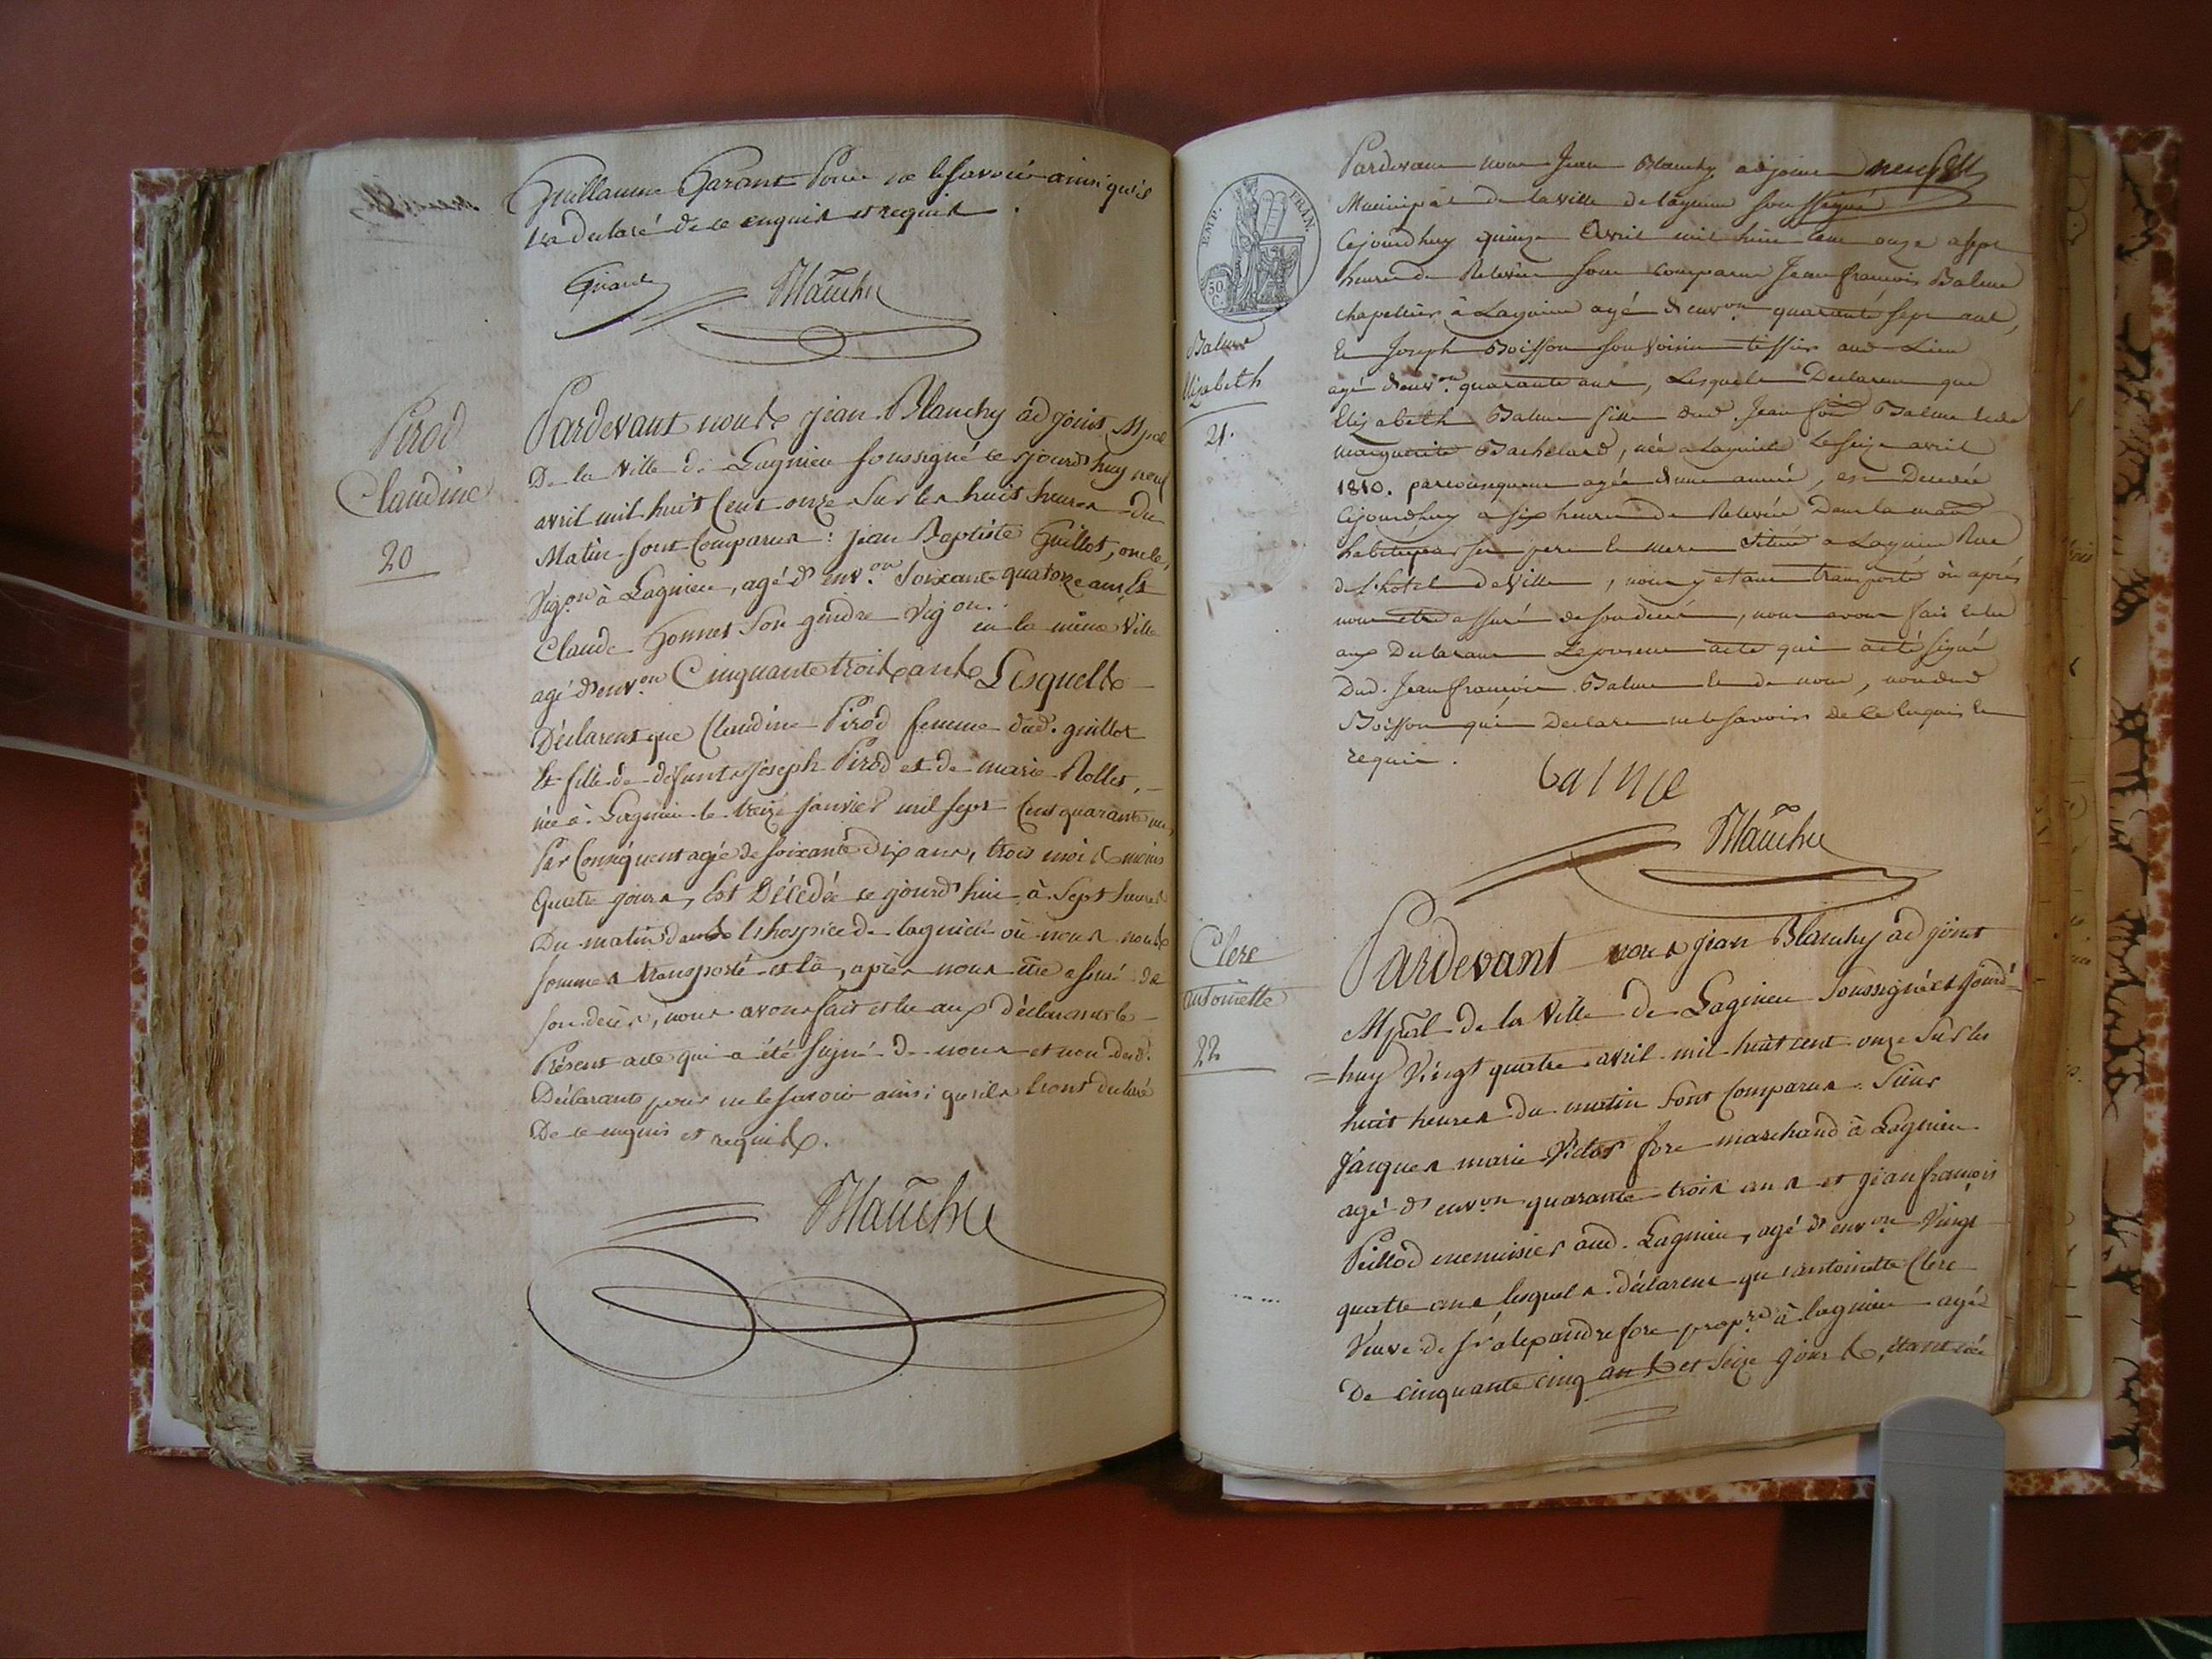 Guillaume Garant Pour ne le Savoir ainsi qu'il
l'a declaré de ce enquis et requis.
Girard Blanchy
Pirod
Claudine
20
Pardevant nous jean Blanchy adjoint Mpal
De la Ville de Lagnieu Soussigné cejourd'huy neuf
avril mil huit Cent onze Sur les huit heures du
Matin Sont Comparus: jean Baptiste Guillot,
Vigon à Lagnieu, agé d'envon Soixante quatorze ans, Et
Claude Son gendre Vigon en la même Ville
agé d'envon Cinquante trois ans Lesquels
Déclarent que Claudine Pirod femme dud. guillot
Et fille de défunts joseph Pirod et de marie Rollet,
née à Lagnieu le treize janvier mil Sept Cent quarante un,
Par Conséquent agée de Soixante Dix ans, trois mois moins
Quatre jours, Est Décédée cejourd'hui à Sept heures
Du matin dans l'hospice de lagnieu où nous nous
Sommes transporté et là, après nous être assuré de
Son décès, nous avons fait et lu aux déclarants le
Présent acte qui a été Signé de nous et non desd.
Déclarants pour ne le Savoir ainsi qu'ils l'ont déclaré
De ce enquis et requis.
Blanchy
EMP. FRAN.
50 C.
neuf
Pardevant nous Jean Blanchy adjoint
Municipal de la ville de lagnieu Soussigné
Cejourd'huy quinze Avril mil huit cent onze a sept
heures de Relevée Sont comparus Jean françois Balme
chapellier à Lagnieu agé d'envon quarante sept ans,
Et Joseph Boisson Son Voisin tissier aud Lieu
agé d'envon quarante ans, Lesquels Declarent que
Elizabeth Balme fille dud. Jean fois Balme et de
marguerite Bachelard, née a Lagnieu Le Seize avril
1810. par consequent agée d'une année, est Decedée
Cejourdhuy a six heures de Relevée Dans la maon
habitée par ses pere et mere Située a Lagnieu Rue
de l'hôtel de Ville, nous y etant transporté où après
nous etre assuré de son decés, nous avons fait et lu
aux Declarans Le present acte qui a eté Signé
Dud. Jean françois Balme et de nous, non dud
Boisson qui Declare ne le Savoir de ce Enquis et
requis.
balme
Blanchy
Balme
Elizabeth
21.
Clerc
antoinette
22
Pardevant nous jean Blanchy adjoint
Mpal de la Ville de Lagnieu Soussigné cejourd'=
=huy Vingt quatre avril mil huit cent onze Sur les
huit heures du matin Sont Comparus. Sieur
Jacques marie Victor fore marchand à Lagnieu
agé d'envon quarante trois ans et jean françois
Peillod menuisier aud. Lagnieu, agé d'envon Vingt
quatre ans lesquels déclarent que antoinette Clerc
Veuve de Sr alexandre fore propre à lagnieu agée
De cinquante cinq ans et Seize jours, étant née